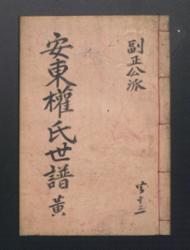 副正公派
安東權氏世譜 黃